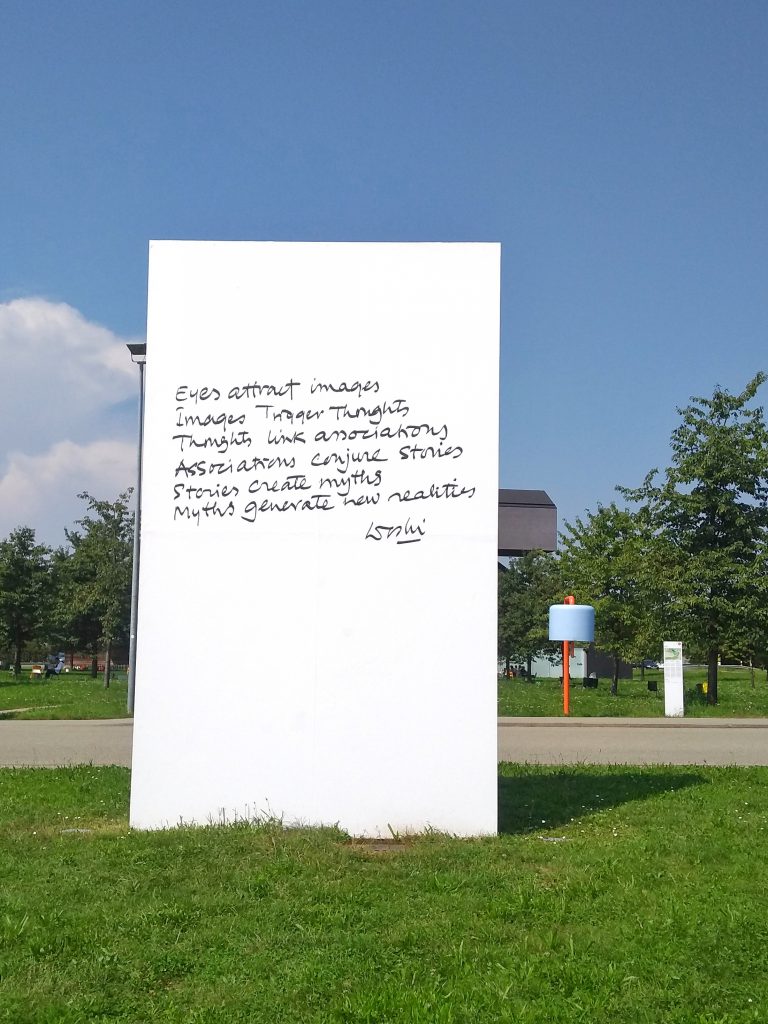 Eyes attract images
Images Trigger Thoughts
Thoughts link associations
Associations conjure stories
Stories create myths
Myths generate new realities
Doshi